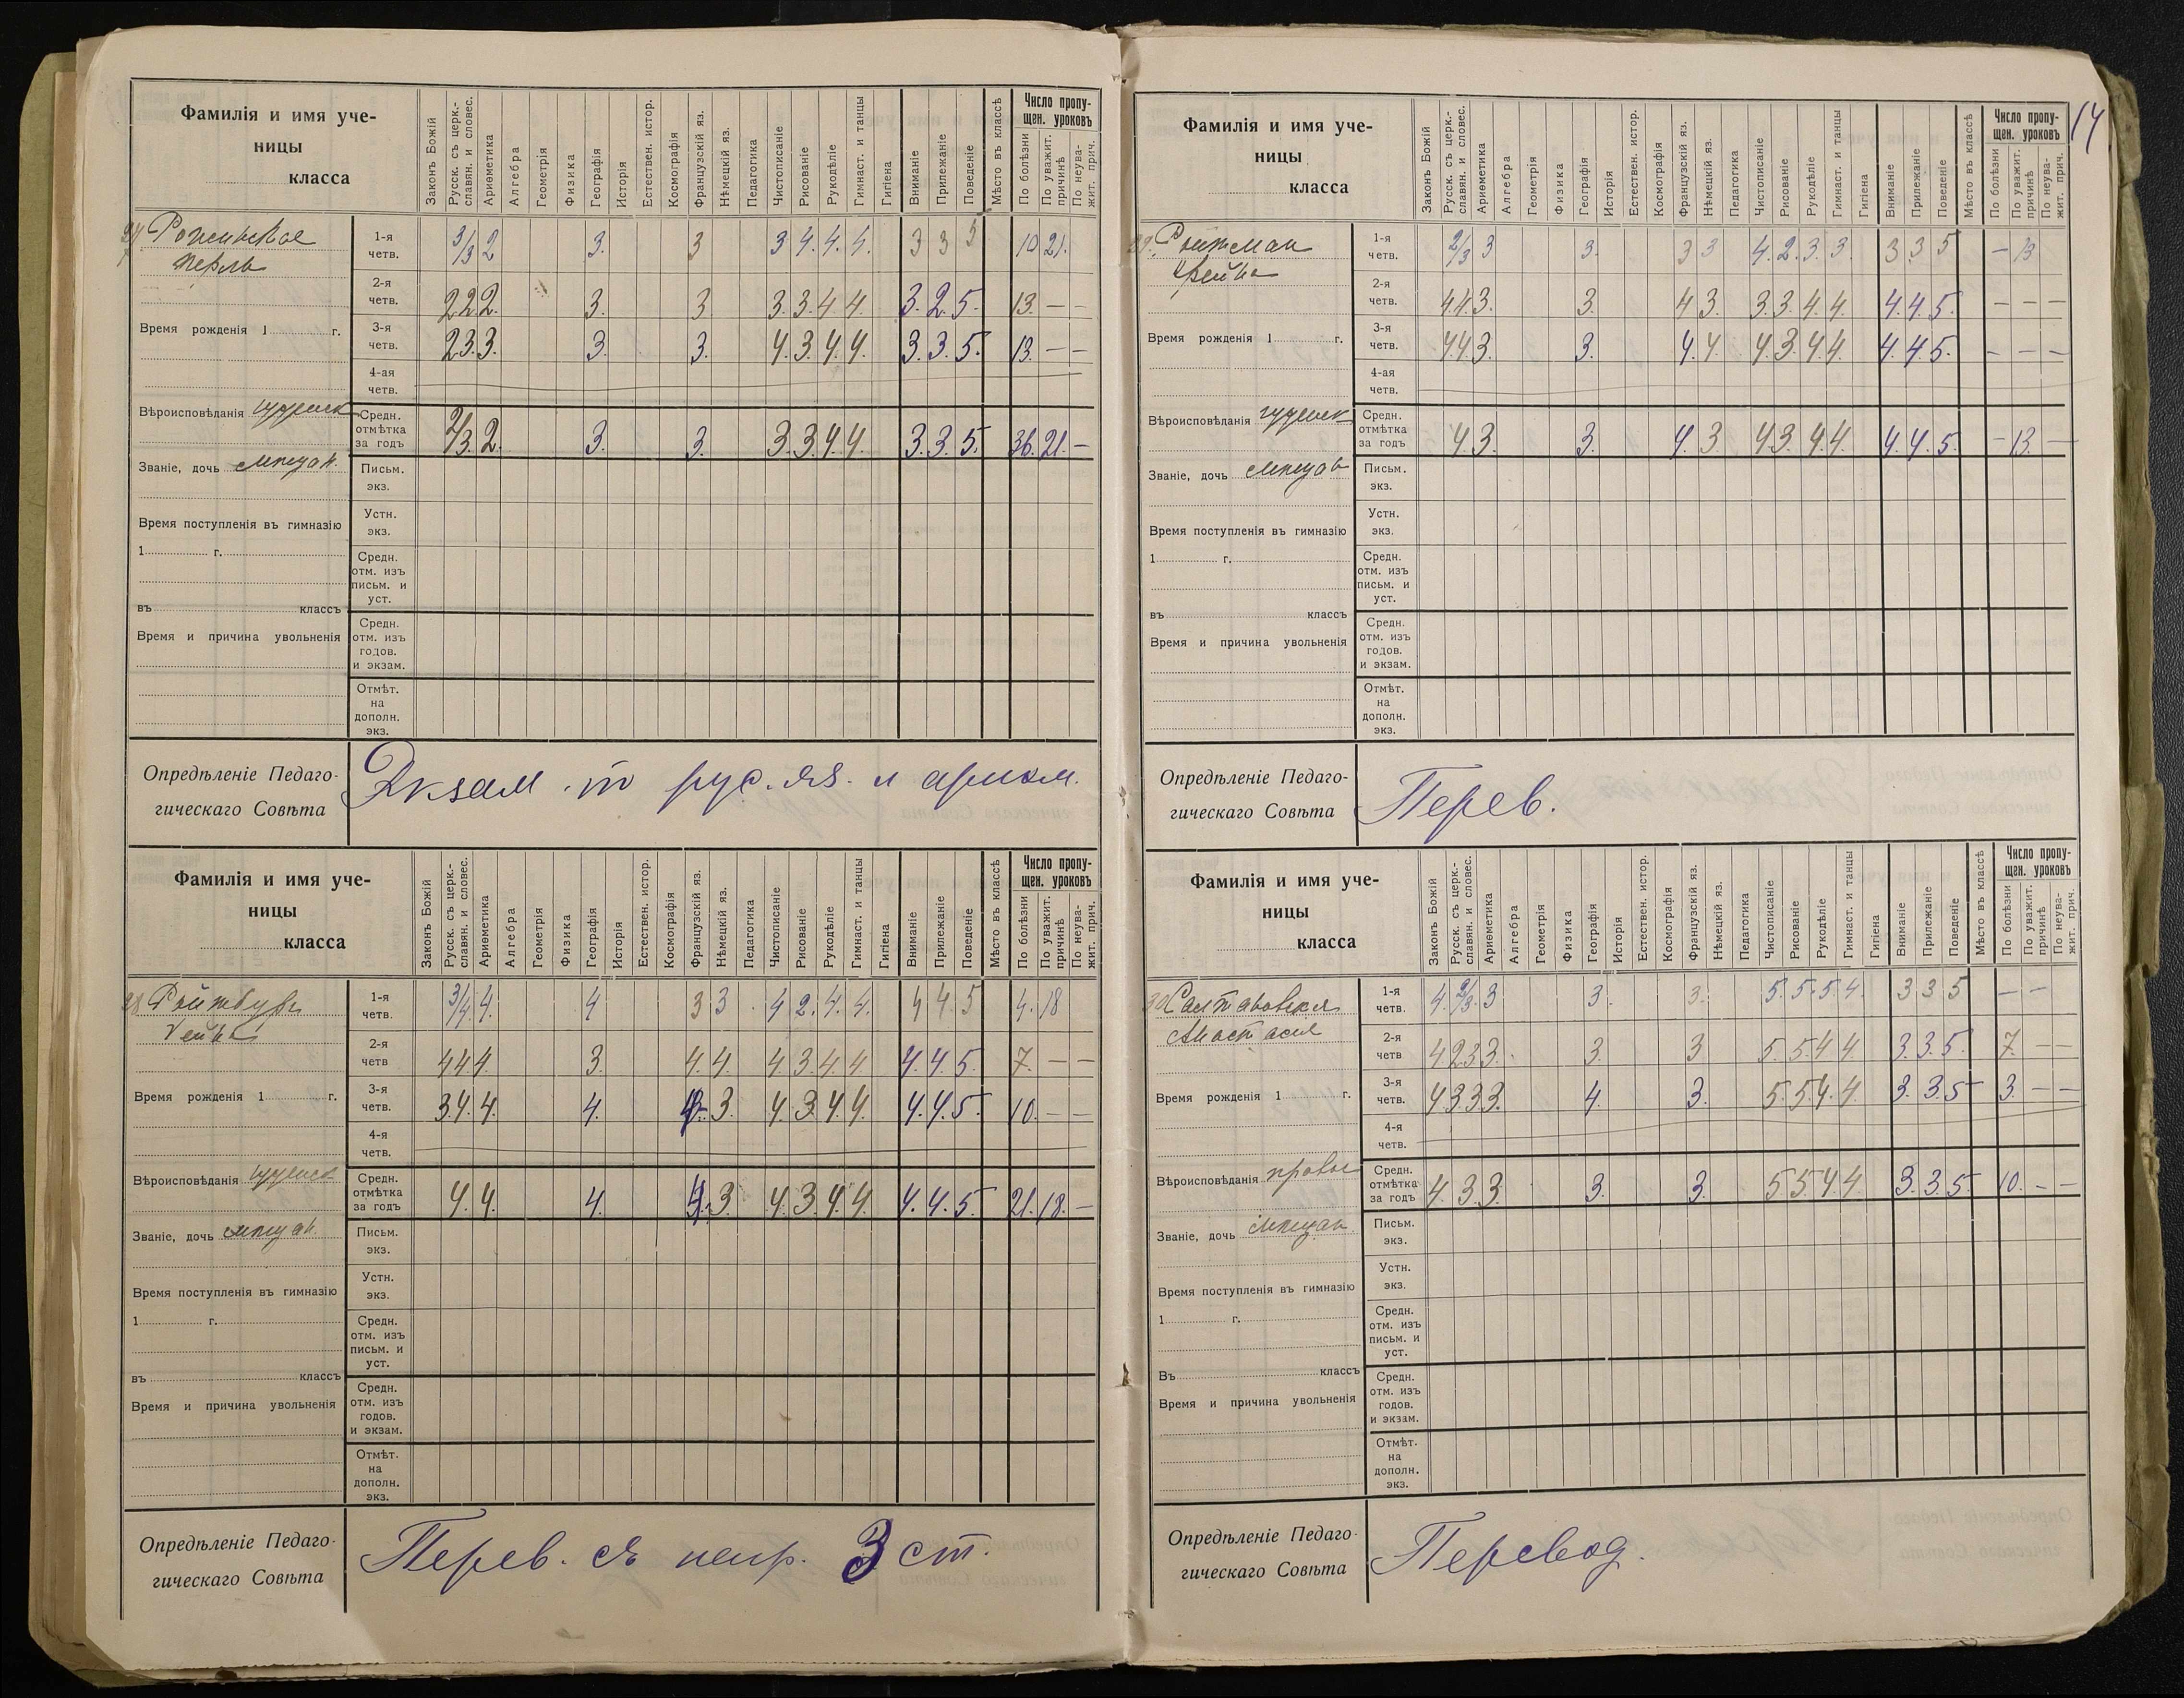 14
Фамилія и имя уче-
ницы
класса
Законъ Божій
Русск. съ церк.-
славян. и словес.
Ариѳметика
Алгебра
Геометрія
Физика
Географія
Исторія
Естествен. истор.
Космографія
Французскій яз.
Нѣмецкій яз.
Педагогика
Чистописаніе
Рисованіе
Рукодѣліе
Гимнаст. и танцы
Гигіена
Вниманіе
Прилежаніе
Поведеніе
Мѣсто въ классѣ
Число пропу-
щен. уроковъ
По болѣзни
По уважит.
причинѣ
По неува-
жит. прич.
Перль
1-я четв. 3/3 2 3. 3 3 4. 4. 4. 3 3 5 10 21.
2-я четв. 2 2 2. 3. 3 3. 3. 4 4. 3. 2. 5. 13. — —
Время рожденія 1 г.
3-я четв. 2 3. 3. 3. 3. 4. 3. 4. 4. 3. 3. 5. 13. — —
4-ая четв.
Вѣроисповѣданія іудейск
Средн. отмѣтка за годъ 2/3. 2. 3. 3. 3. 3. 4. 4. 3. 3. 5. 36. 21. —
Званіе, дочь мѣщан.
Письм. экз.
Время поступленія въ гимназію
Устн. экз.
1 г.
Средн. отм. изъ письм. и уст.
въ классъ
Время и причина увольненія
Средн. отм. изъ годов. и экзам.
Отмѣт. на дополн. экз.
Опредѣленіе Педаго-
гическаго Совѣта
Экзам. по рус. яз. и ариѳм.
Фамилія и имя уче-
ницы
класса
Законъ Божій
Русск. съ церк.-
славян. и словес.
Ариѳметика
Алгебра
Геометрія
Физика
Географія
Исторія
Естествен. истор.
Космографія
Французскій яз.
Нѣмецкій яз.
Педагогика
Чистописаніе
Рисованіе
Рукодѣліе
Гимнаст. и танцы
Гигіена
Вниманіе
Прилежаніе
Поведеніе
Мѣсто въ классѣ
Число пропу-
щен. уроковъ
По болѣзни
По уважит.
причинѣ
По неува-
жит. прич.
28
1-я четв. 3/4. 4. 4 3 3 4 2. 4. 4. 4 4. 5 4. 18
2-я четв 4 4 4 3. 4. 4. 4. 3. 4 4 4. 4. 5. 7. — —
Время рожденія 1 г.
3-я четв. 3. 4. 4. 4. 3. 4. 3. 4. 4. 4. 4. 5. 10. — —
4-я четв.
Вѣроисповѣданія іудейск
Средн. отмѣтка за годъ 4. 4. 4. 3. 4. 3. 4. 4. 4. 4. 5. 21. 18. —
Званіе, дочь мѣщан.
Письм. экз.
Время поступленія въ гимназію
Устн. экз.
1 г.
Средн. отм. изъ письм. и уст.
въ классъ
Время и причина увольненія
Средн. отм. изъ годов. и экзам.
Отмѣт. на дополн. экз.
Опредѣленіе Педаго-
гическаго Совѣта
Перев. съ нагр. 3 ст.
Фамилія и имя уче-
ницы
класса
Законъ Божій
Русск. съ церк.-
славян. и словес.
Ариѳметика
Алгебра
Геометрія
Физика
Географія
Исторія
Естествен. истор.
Космографія
Французскій яз.
Нѣмецкій яз.
Педагогика
Чистописаніе
Рисованіе
Рукодѣліе
Гимнаст. и танцы
Гигіена
Вниманіе
Прилежаніе
Поведеніе
Мѣсто въ классѣ
Число пропу-
щен. уроковъ
По болѣзни
По уважит.
причинѣ
По неува-
жит. прич.
29. Ройтман
Фейга
1-я четв. 2/3 3 3. 3 3 4. 2. 3. 3. 3. 3. 5 — 13
2-я четв. 4. 4. 3. 3. 4 3. 3. 3. 4. 4. 4. 4. 5. — — —
Время рожденія 1 г.
3-я четв. 4. 4. 3. 3. 4. 4. 4. 3. 4. 4. 4. 4. 5. — — —
4-ая четв.
Вѣроисповѣданія іудейск
Средн. отмѣтка за годъ 4. 3. 3. 4. 3 4. 3. 4. 4. 4. 4. 5. — 13. —
Званіе, дочь мѣщан
Письм. экз.
Время поступленія въ гимназію
Устн. экз.
1 г.
Средн. отм. изъ письм. и уст.
въ классъ
Время и причина увольненія
Средн. отм. изъ годов. и экзам.
Отмѣт. на дополн. экз.
Опредѣленіе Педаго-
гическаго Совѣта
Перев.
Фамилія и имя уче-
ницы
класса
Законъ Божій
Русск. съ церк.-
славян. и словес.
Ариѳметика
Алгебра
Геометрія
Физика
Географія
Исторія
Естествен. истор.
Космографія
Французскій яз.
Нѣмецкій яз.
Педагогика
Чистописаніе
Рисованіе
Рукодѣліе
Гимнаст. и танцы
Гигіена
Вниманіе
Прилежаніе
Поведеніе
Мѣсто въ классѣ
Число пропу-
щен. уроковъ
По болѣзни
По уважит.
причинѣ
По неува-
жит. прич.
30
Анастасия
1-я четв. 4. 2/3. 3 3. 3. 5. 5. 5 4. 3 3 5 — —
2-я четв 4 2 3 3. 3. 3 5. 5. 4 4. 3. 3. 5. 7. — —
Время рожденія 1 г.
3-я четв. 4 3. 3 3. 4. 3. 5. 5. 4. 4. 3. 3. 5 3. — —
4-я четв.
Вѣроисповѣданія правос
Средн. отмѣтка за годъ 4. 3. 3. 3. 3. 5 5. 4. 4. 3. 3. 5. 10. — —
Званіе, дочь мѣщан.
Письм. экз.
Время поступленія въ гимназію
Устн. экз.
1 г.
Средн. отм. изъ письм. и уст.
Въ классъ
Время и причина увольненія
Средн. отм. изъ годов. и экзам.
Отмѣт. на дополн. экз.
Опредѣленіе Педаго-
гическаго Совѣта
Перевод.